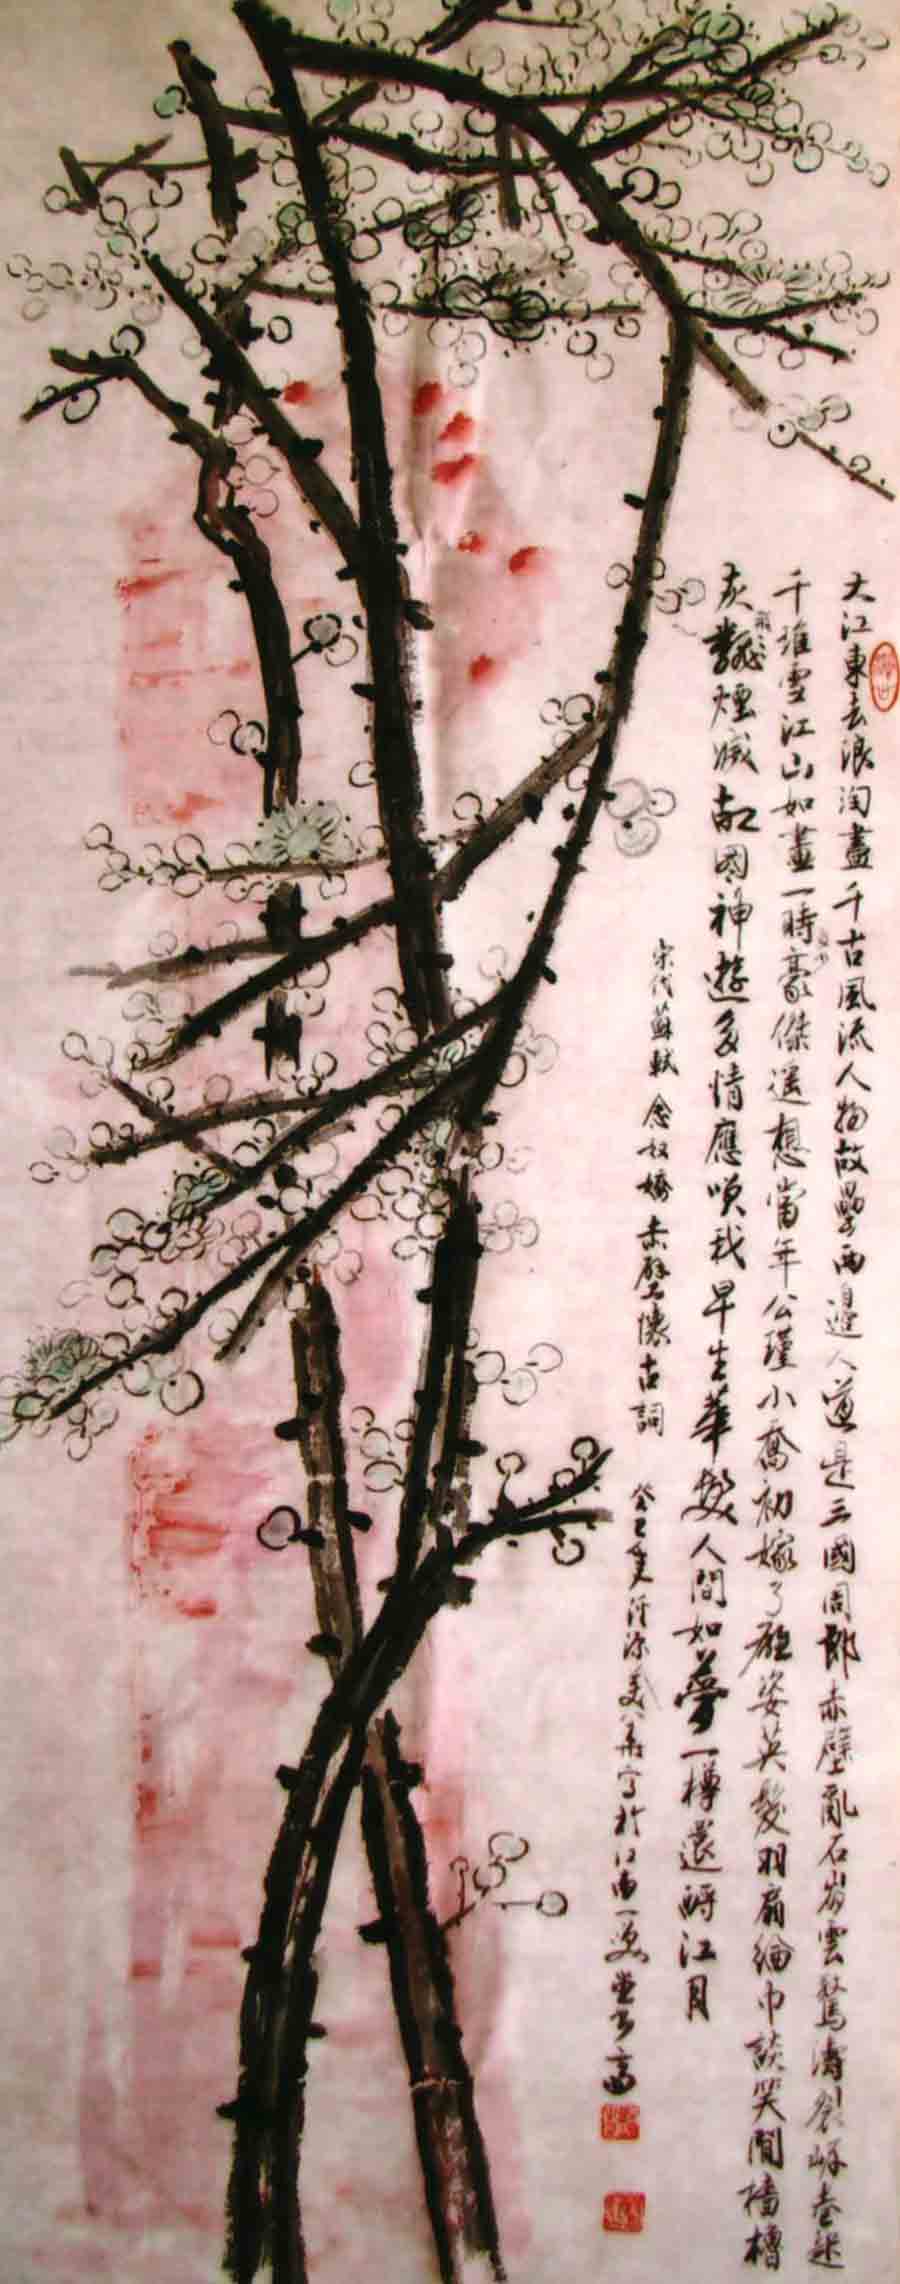 大江東去浪淘盡千古風流人物故壘西邊人道是三國周郎赤壁亂石崩雲驚濤裂岸卷起
千堆雪江山如畫一時多少豪傑遙想當年公瑾小喬初嫁了雄姿英發羽扇綸巾談笑間檣櫓
灰飛煙滅故國神遊多情應笑我早生華髮人間如夢一樽還酹江月
宋代蘇軾 念奴嬌 赤壁懷古詞 癸巳夏 寫於